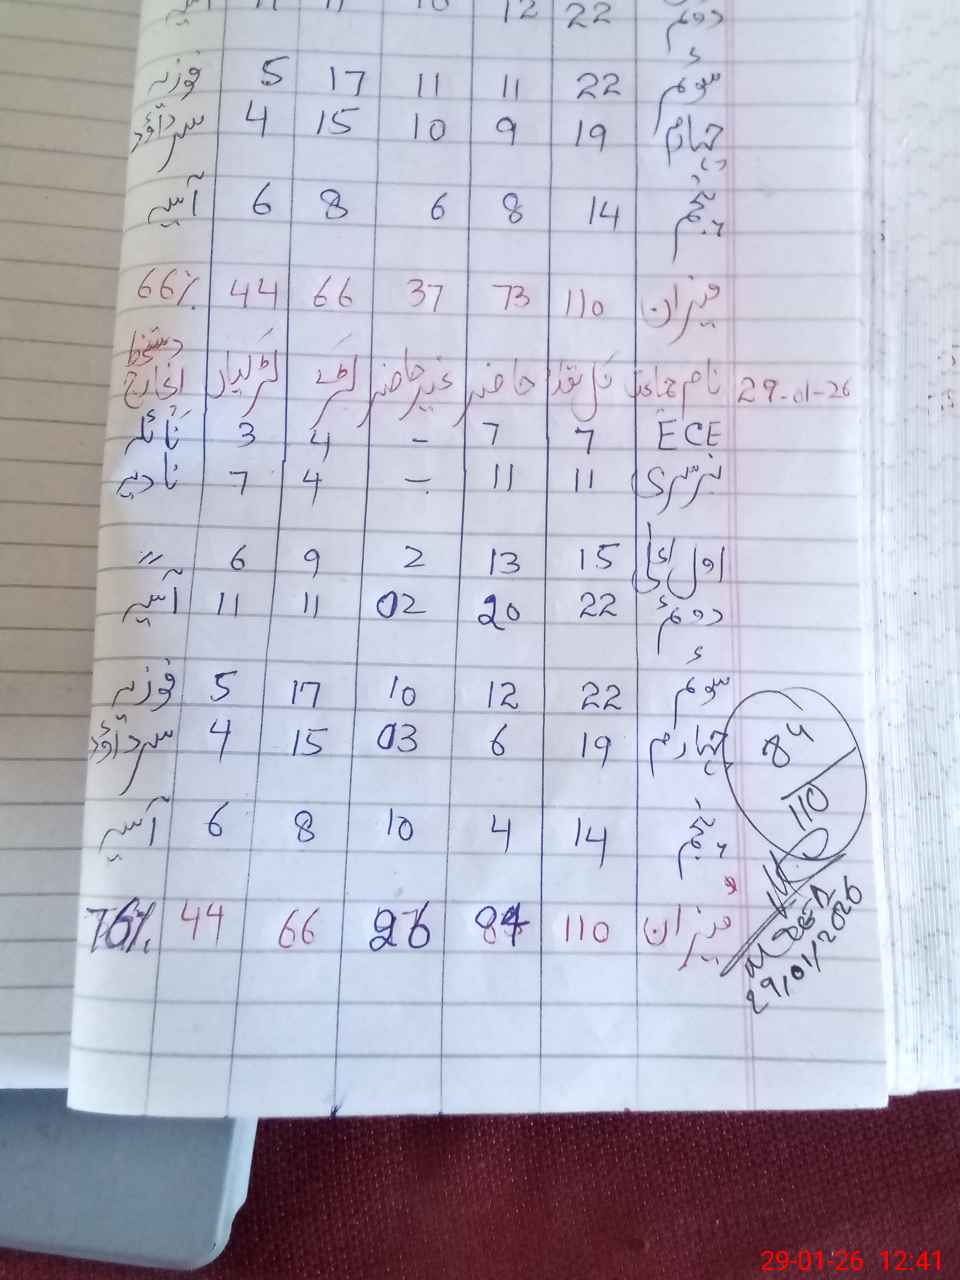 دوم 22 12 10 11 11
سوم 22 11 11 17 5 فوزیہ
چہارم 19 9 10 15 4 سر داؤد
پنجم 14 8 6 8 6 آسیہ
میزان 110 73 37 66 44 66%
29-01-26 نام جماعت کل تعداد حاضر غیر حاضر لڑکے لڑکیاں دستخط انچارج
ECE 7 7 - 4 3 نائلہ
نرسری 11 11 - 4 7 نادیہ
اول 15 13 2 9 6 "
دوم 22 20 02 11 11 آسیہ
سوم 22 12 10 17 5 فوزیہ
چہارم 19 6 03 15 4 سر داؤد
پنجم 14 4 10 8 6 آسیہ
میزان 110 84 26 66 44 76%
84
110
29/01/2026
29-01-26 12:41